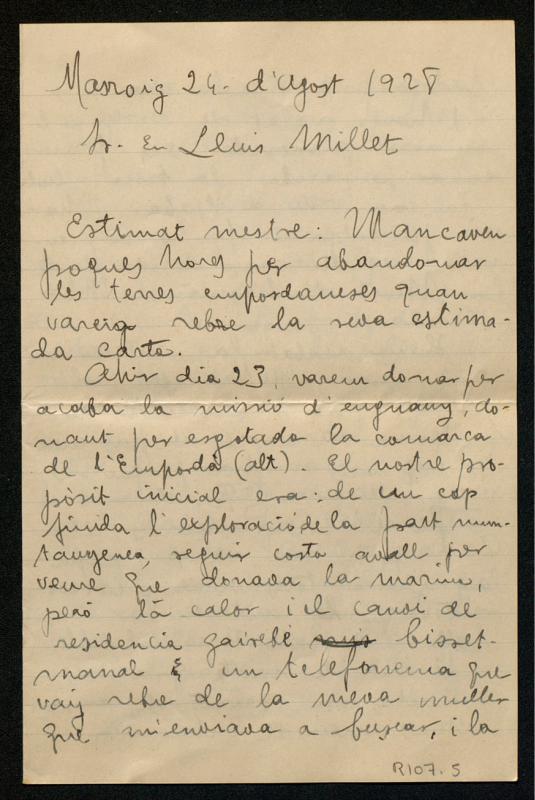 Masroig 24. d'Agost 1928
Sr. En Lluis Millet
Estimat mestre: Mancaven
poques hores per abandonar
les terres empordaneses quan
vareig rebre la seva estima-
da carta.
Ahir dia 23, varem donar per
acaba la missió d'enguany, do-
nant per esgotada la comarca
de l'Empordà (alt). El nostre pro-
pòsit inicial era: de un cop
finida l'exploració de la part mun-
tanyenca, seguir costa avall per
veure que donava la marina,
però la calor i el canvi de
residencia gairebé bisset-
manal i un telefonema que
vaig rebre de la meva muller
que m'enviava a buscar, i la
R107.5